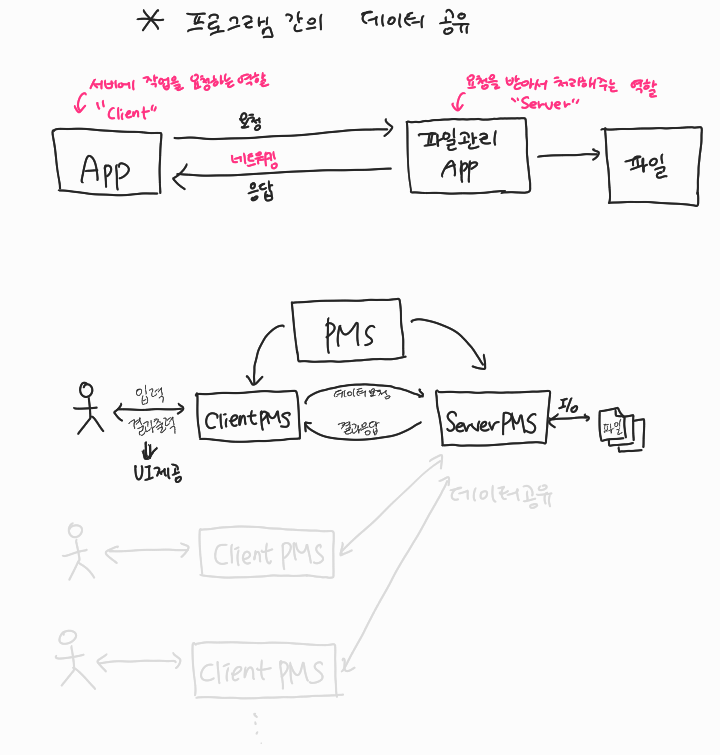 * 프로그램 간의 데이터 공유
서버에 작업을 요청하는 역할
"Client"
요청을 받아서 처리해주는 역할
"Server"
App
요청
네트워킹
응답
파일관리
App
파일
PMS
입력
결과출력
UI제공
ClientPMS
데이터요청
결과응답
ServerPMS
I/o
파일
데이터공유
Client PMS
Client PMS